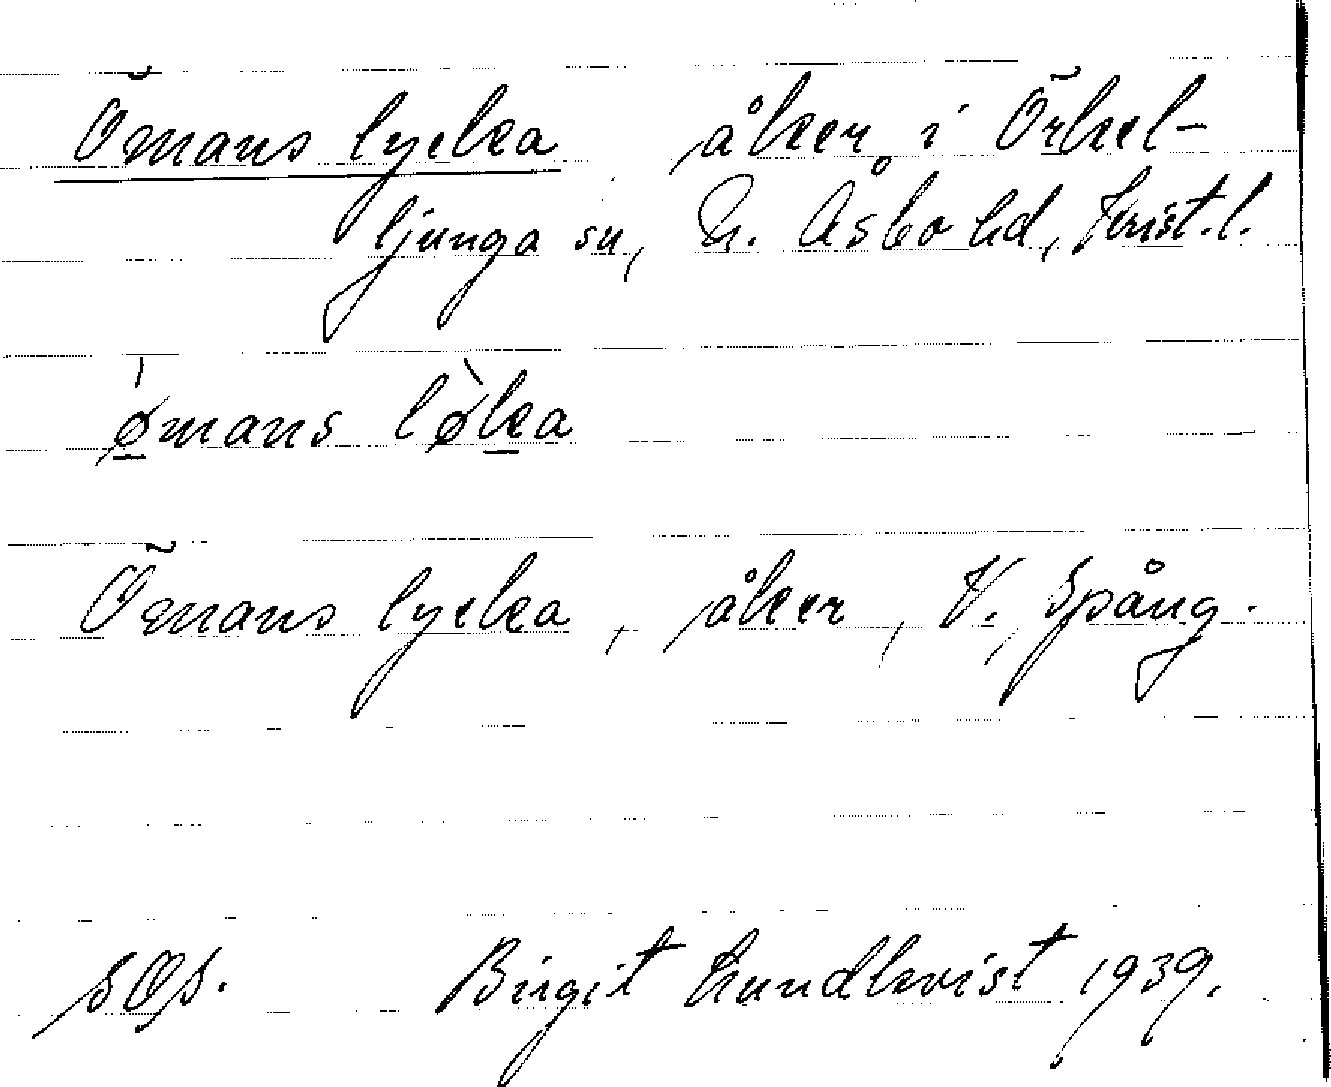 Ömans lycka åker i Örkel-
ljunga sn, N. Åsbo hd, Krist. l.
ømans lø̀ka
Ömans lycka, åker, V. Spång.
SOS. Birgit Lundkvist 1939.